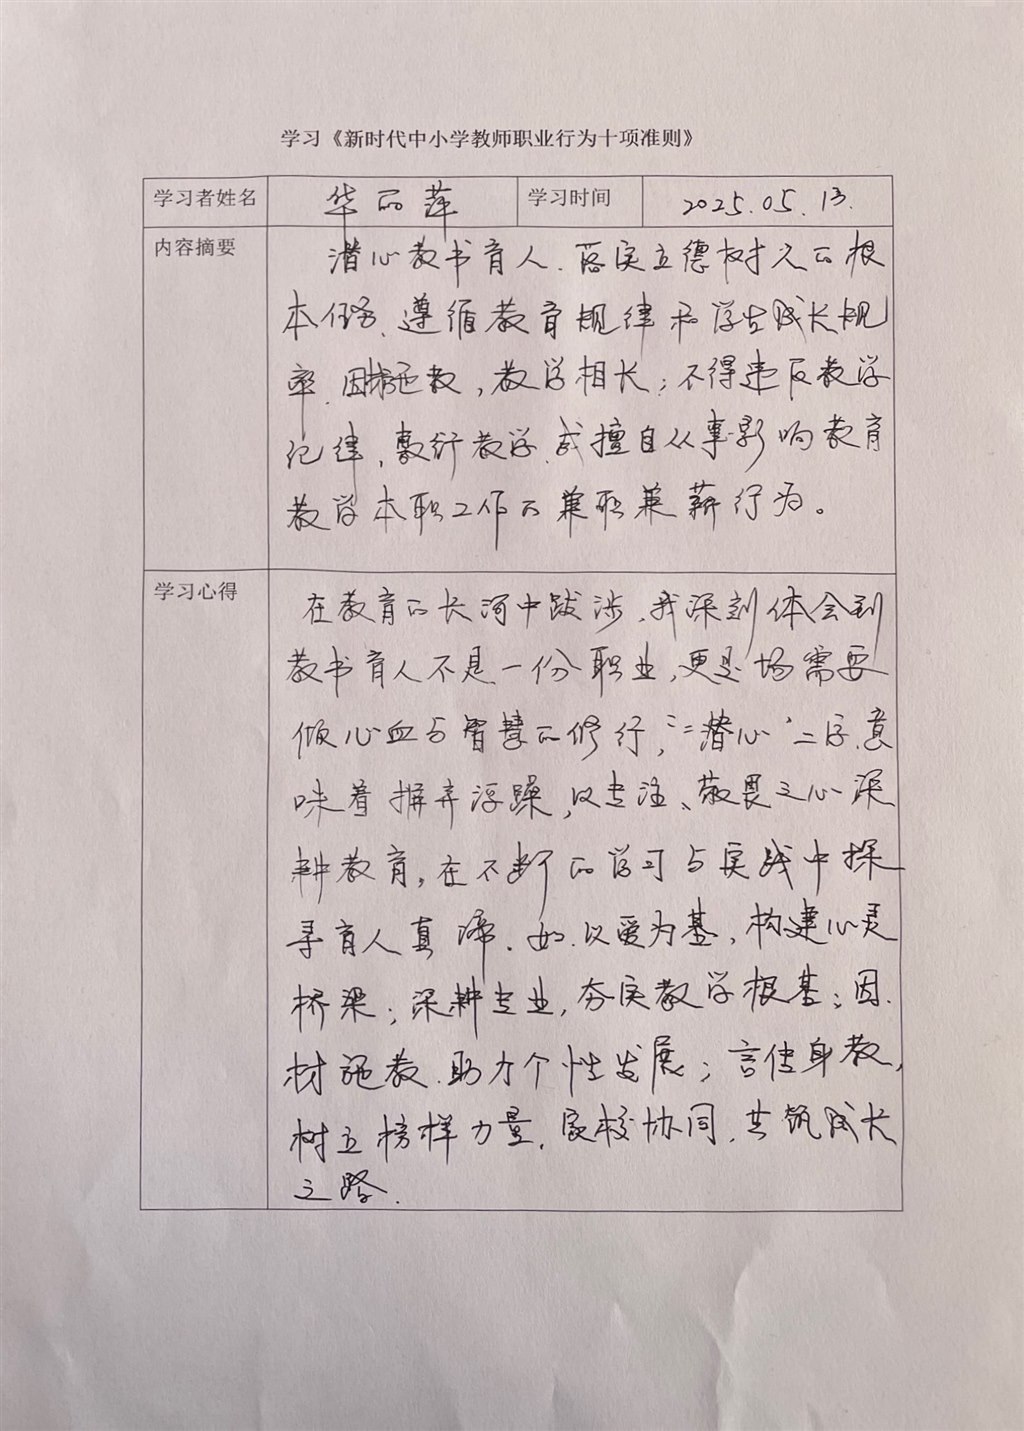 学习《新时代中小学教师职业行为十项准则》
学习者姓名 华丽萍 学习时间 2025.05.13.
内容摘要 潜心教书育人.落实立德树人的根
本任务.遵循教育规律和学生成长规
率.因材施教,教学相长;不得违反教学
纪律,敷衍教学.或擅自从事影响教育
教学本职工作的兼职兼薪行为。
学习心得 在教育的长河中跋涉,我深刻体会到
教书育人不是一份职业,更是场需要
倾心血与智慧的修行,“潜心”二字.意
味着摒弃浮躁,以专注、敬畏之心深
耕教育,在不断的学习与实践中探
寻育人真谛.如.以爱为基,构建心灵
桥梁;深耕专业,夯实教学根基;因.
材施教.助力个性发展;言传身教,
树立榜样力量.家校协同,共筑成长
之路.